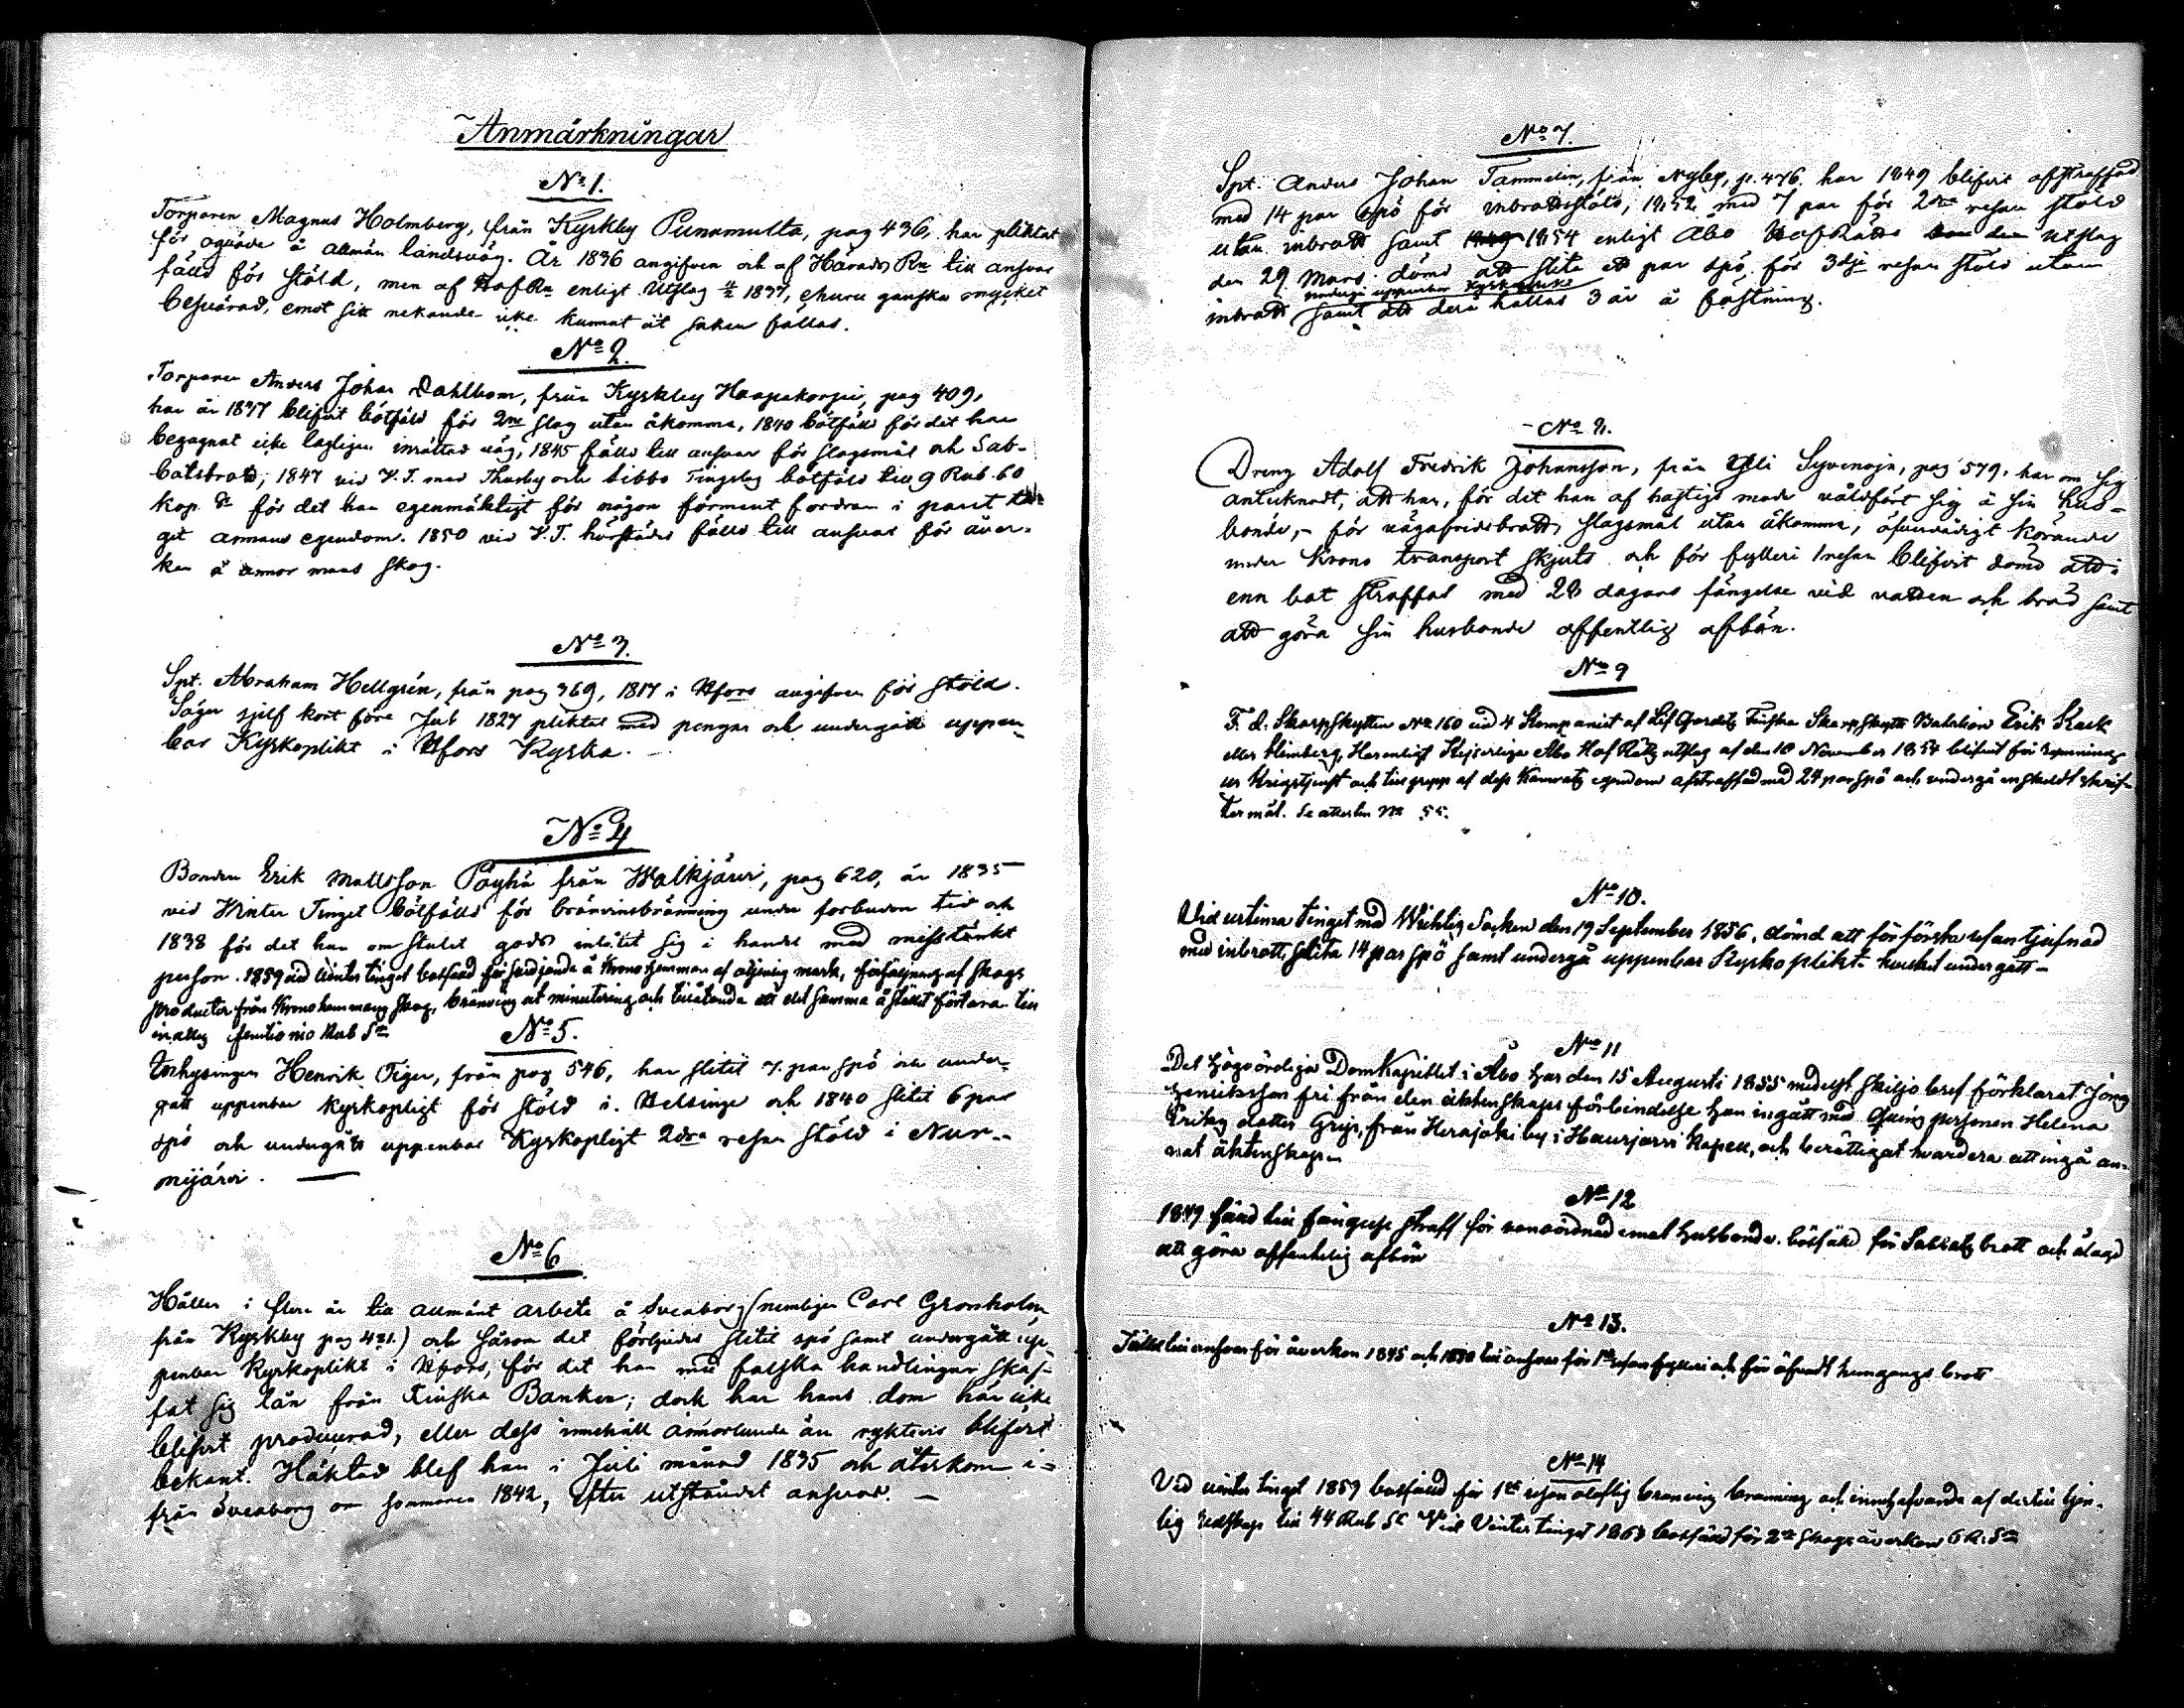 Anmärkningar
No 1.
Torparen Magnus Holmberg, från Kyrkby Punamulta, pag 436, har pliktat
för ogväde å allmän landsväg. År 1836 angifven och af Härads Rn till ansvar
fälld för stöld, men af HofRn enligt Utslag 1837, ehuru ganska mycket
besvärad, emot sitt nekande icke kunnat åt saken fällas.
No 2.
Torparen Anders Johan Dahlbom, från Kyrkby Haapakorpi, pag 409,
har år 1837 blifvit bötfälld för 2ne slag utan åkomma, 1840 bötfälld för det han
begagnat icke lagligen inrättad väg, 1845 fälld till ansvar för slagsmål och Sab-
batsbrott, 1847 vid V. T. med Thusby och Sibbo Tingslag bötfälld till 9 Rub. 60
kop. Sr för det han egenmäktigt för någon förment fordran i pant ta-
git annans egendom. 1850 vid V. T. härstädes fälld till ansvar för åver-
kan å annor mans skog.
No 3.
Spt. Abraham Hellgrén, från pag 369, 1817 i Hfors angifven för stöld.
Säger sjelf kort före Jul 1827 pliktat med pengar och undergått uppen-
bar Kyrkoplikt i Hfors Kyrka.
No 4
Bonden Erik Mattsson Pöyhä från Walkjärvi, pag 620, år 1835
vid Vinter Tinget bötfälld för bränvinsbränning under förbuden tid och
1838 för det han om stulet gods inlåtit sig i handel med misstänkt
person. 1859 vid Vinter tinget botfälld för svedjande å Kronohemman af otjenlig mark, försäljning af skogs
producter från Kronohemmans skog, bränvins ut minutering och tillåtande att det samma å stället förtäras till
inalles femtio nio Rub Sr
No 5.
Inhysingen Henrik Tiger, från pag 546, har slitit 7. par spö och under-
gått uppenbar kyrkopligt för stöld i. Helsinge och 1840 slitit 6 par
spö och undergått uppenbar Kyrkopligt 2dra resan stöld i Nur-
mijärvi.
No 6
Hållen i flere år till allmänt arbete å Sveaborg (nemligen Carl Gronholm
från Kyrkby pag 421.) och såsom det förljudes slitit spö samt undergått up-
penbar Kyrkoplikt i Hfors, för det han med falska handlingar skaf-
fat sig lån från Finska Banken; dock har hans dom här icke
blifvit producerad, eller dess innehåll annorlunda än ryktevis blifvit
bekant. Häktad blef han i Juli månad 1835 och återkom i-
från Sveaborg om sommaren 1842, efter utståndet ansvar.
No 7.
Spt. Anders Johan Tammelin, från Nyby, p. 476. har 1849 blifvit afstraffad
med 14 par spö för inbrottsstöld, 1852 med 7 par för 2dra resan stöld
utan inbrott samt 1854 enligt Åbo HofRätts den utslag
den 29 Mars dömd att slita par spö för 3dje resan stöld utan
undergå uppenbar Kyrkoplikt
inbrott samt att derå hållas 3 år å fästning.
No 8.
Dreng Adolf Fredrik Johansson, från Yli Syvenoja, pag 579, har om sig
antecknadt, att han, för det han af hastigt mode våldfört sig å sin hus-
bonde, för vägafridsbrott, slagsmål utan åkomma, ofvarligt körande
under Krono transport skjuts och för fylleri 1 resan blifvit dömd att i
enn bot straffas med 28 dagars fängelse vid vatten och bröd samt
att göra sin husbonde offentlig afbön.
No 9
F. d. Skarpskytten No 160 vid 4 Kompaniet af Lif Gardets Finska Skarpskytte Bataljon Erik Stack
eller Stenberg, Har enligt Kejserliga Åbo Hof Rätts utslag af den 10 November 1854 blifvit för rymning
ur Krigstjenst och tillgrepp af dess Kamrats egendom afstraffad med 24 par spö och undergå enskildt skrif-
termål. Se attesten No 55.
No 10.
Vid urtima tinget med Wichtis Socken den 19 September 1856. dömd att för första resan tjufnad
med inbrott, slita 14 par spö samt undergå uppenbar Kyrkoplikt. hvilket undergått
No 11
Det Högvördiga DomKapitlet i Åbo har den 15 Augusti 1855 medelst skiljobref förklarat Jong
Henriksson fri från den äktenskaps förbindelse han ingått med Qvins personen Helena
Eriks dotter Grip, från Herajoki by i Hausjärvi Kapell, och berättigat hvardera att ingå an-
nat äktenskap.
No 12
1849 fälld till fängelse straff för vanvördnad emot husbonde. bötfälld för Sabbats brott och ålagd
att göra offentelig afbön
No 13.
Fälld till ansvar för åverkan 1845 och 1850 till ansvar för 1sta resan fylleri och för öfvadt hemgångs brott
No 14
Vid vinter tinget 1859 botfälld för 1sta resan olaflig brännvins bränning och innehafvande af dertill tjen-
lig redskap till 44 Rub Sr Vid Vinter tinget 1863 botfälld för 2ra skogs åverkan 6 R. Sr